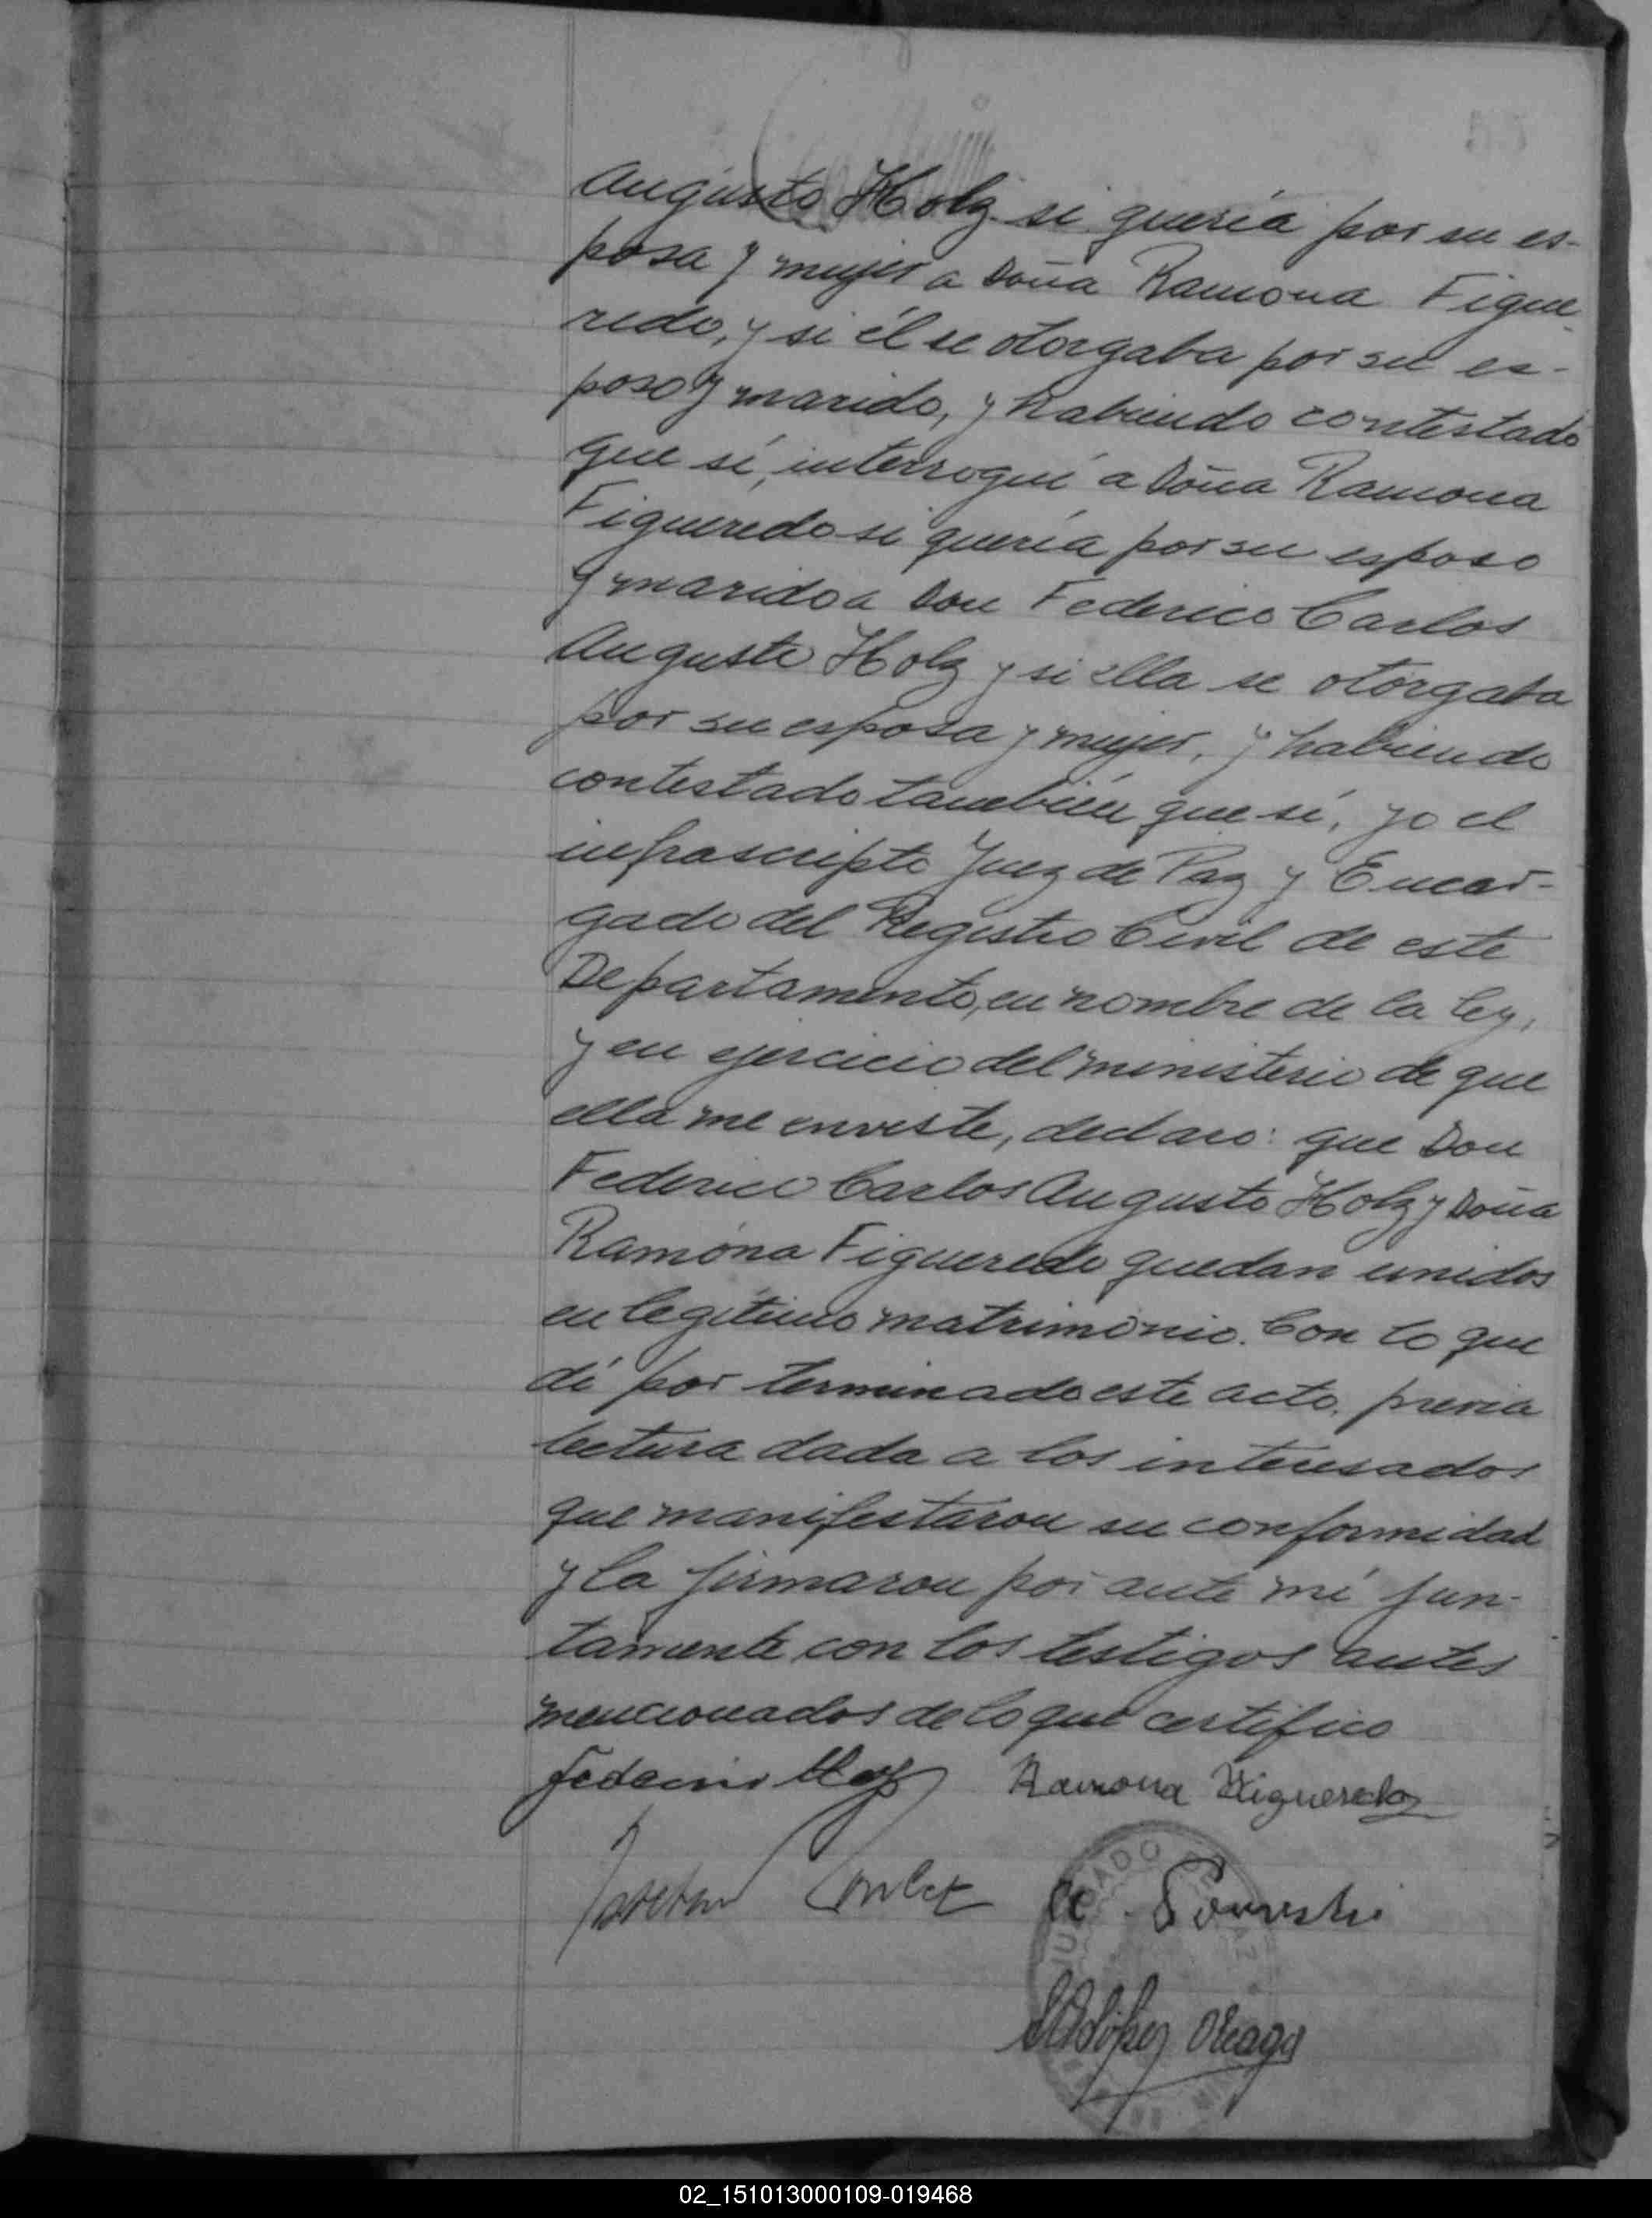 Augusto Holz si quería por su es-
posa y mujer a Doña Ramona Figue
redo, y si él se otorgaba por su es-
poso y marido, y habiendo contestado
que sí, interrogué a Doña Ramona
Figueredo si quería por su esposo
y marido a Don Federico Carlos
Augusto Holz y si ella se otorgaba
por su esposa y mujer, y habiendo
contestado también que sí, yo el
infrascripto Juez de Paz y Encar-
gado del Registro Civil de este
Departamento, en nombre de la ley,
y en ejercicio del ministerio de que
ella me enviste, declaro: que Don
Federico Carlos Augusto Holz y Doña
Ramona Figueredo quedan unidos
en legítimo matrimonio. Con lo que
dí por terminado este acto, previa
lectura dada a los interesados
que manifestaron su conformidad
y la firmaron por ante mí jun-
tamente con los testigos antes
mencionados de lo que certifico
Ramona Figueredo
JUZGADO DE PAZ
02_151013000109-019468